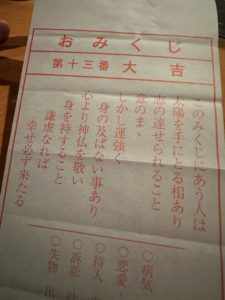 おみくじ
第十三番 大吉
このみくじにあう人は
太陽を手にとる相あり
志の達せられること
意のまゝ
しかし運強く
身の及ばない事あり
心より神仏を敬い
身を持すること
謙虚なれば
幸せ必ず来たる
○病気
○恋愛・
○待人
○訴訟
○失物 出